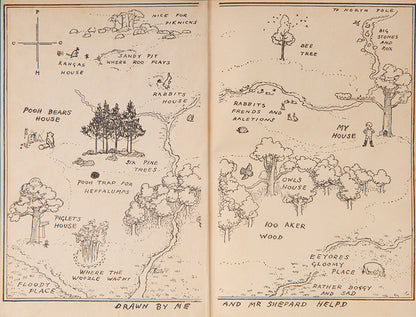 NICE FOR
PIKNICKS
P
C C
H
KANGAS
HOUSE
SANDY PIT
WHERE ROO PLAYS
RABBITS
HOUSE
POOH BEARS
HOUSE
SIX PINE
TREES
POOH TRAP FOR
HEFFALUMPS
PIGLETS
HOUSE
WHERE THE
WOOZLE WASNT
FLOODY
PLACE
DRAWN BY ME
TO NORTH POLE
BIG
STONES
AND
ROX
BEE
TREE
RABBITS
FRENDS AND
RALETIONS
MY
HOUSE
OWLS
HOUSE
100 AKER
WOOD
EEYORES
GLOOMY
PLACE
RATHER BOGGY
AND SAD
AND MR SHEPARD HELPD